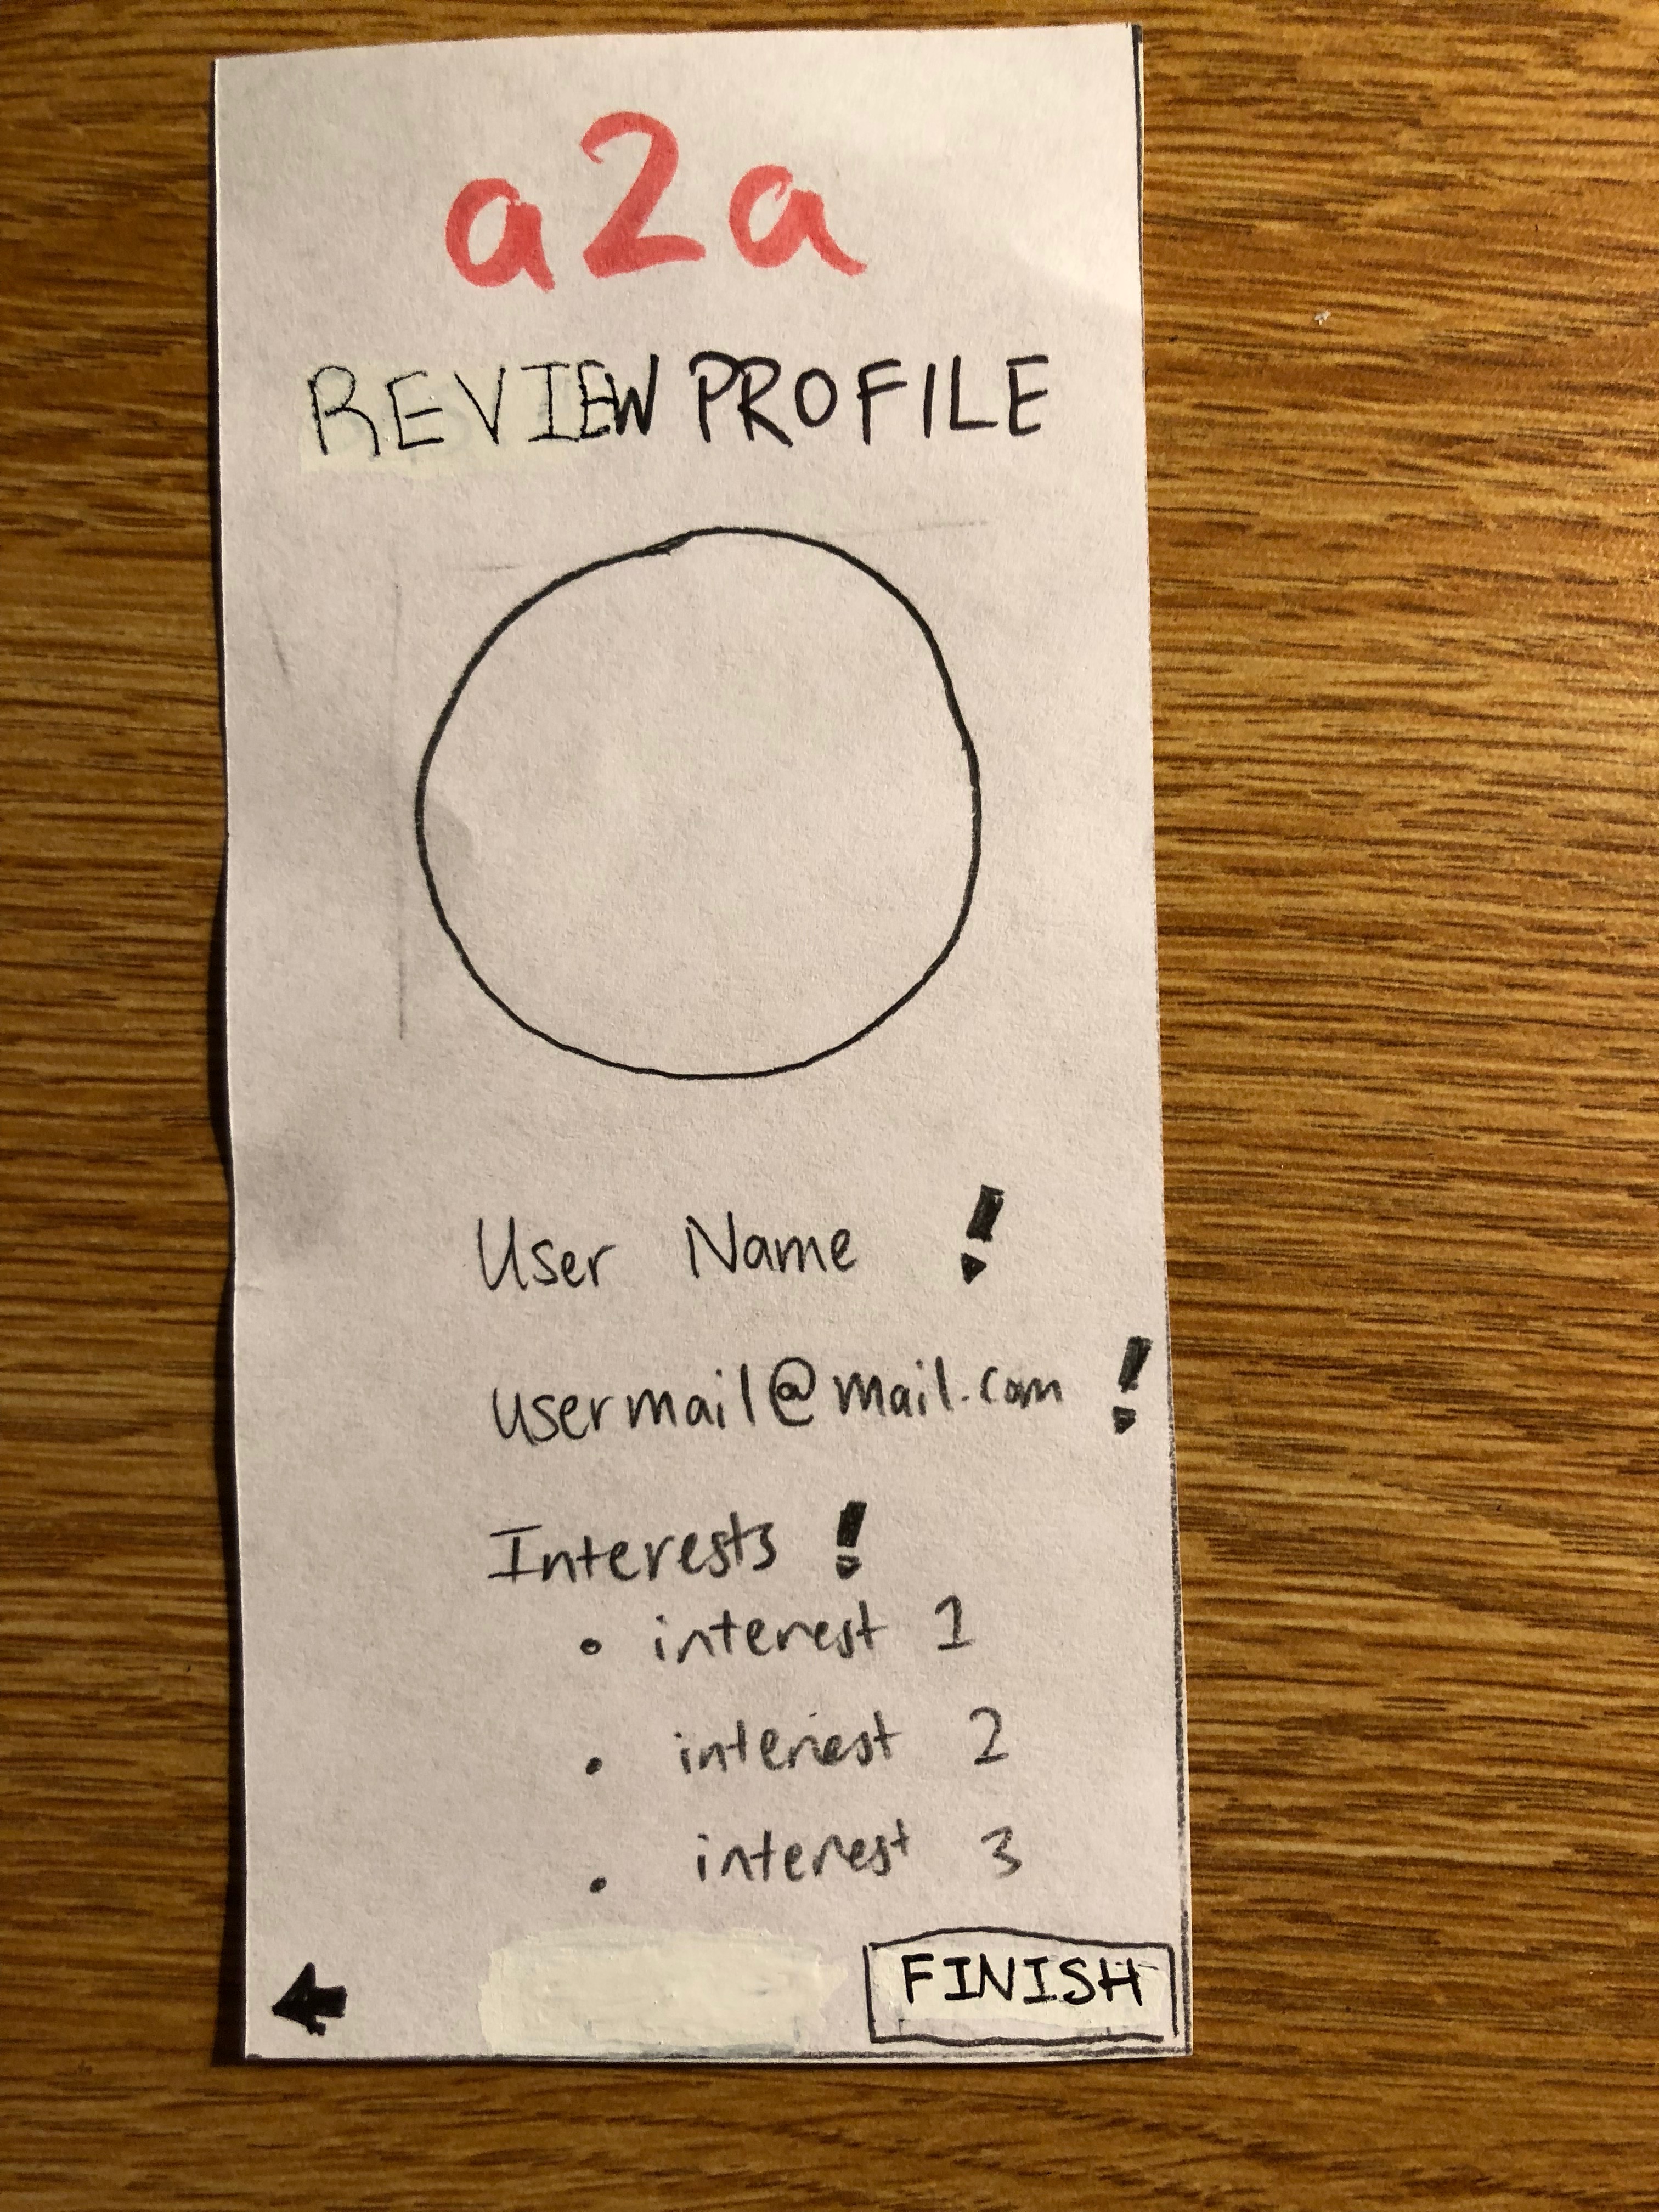 a2a
REVIEW PROFILE
User Name !
usermail@mail.com !
Interests !
• interest 1
• interest 2
• interest 3
FINISH